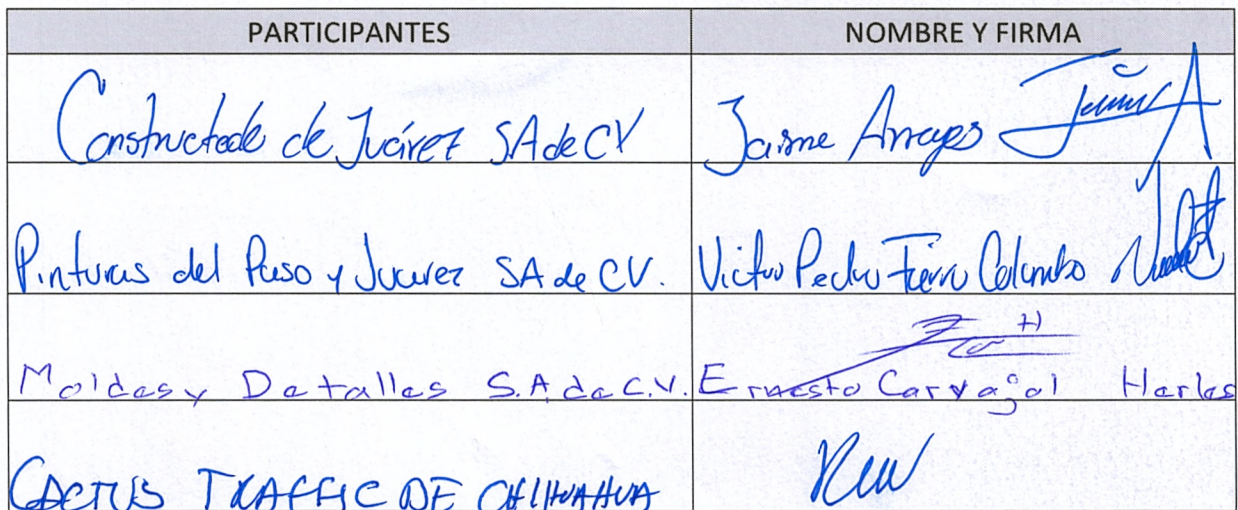 PARTICIPANTES NOMBRE Y FIRMA
Constructode de Juárez SA de CV Jaime Arroyos
Pinturas del Paso y Juarez SA de CV. Victor Pedro Fierro Colombo
Moldes y Detalles S.A de C.V. Ernesto Carvajal Herles
CACTUS TRAFFIC DE CHIHUAHUA